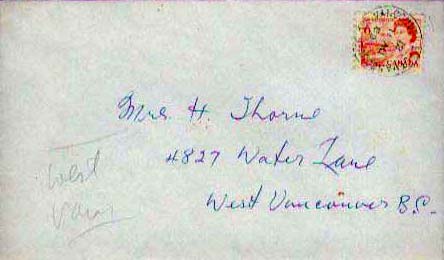 Mrs. H. Thorne
4827 Water Lane
West Vancouver B.C.
West
Vanc